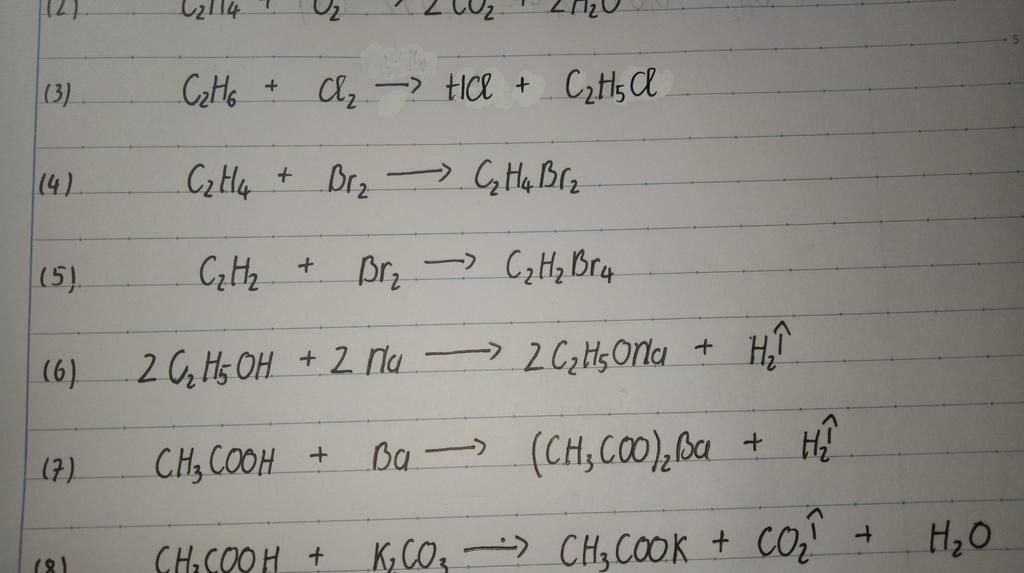 (2) C₂H₄ + O₂ → 2CO₂ + 2H₂O
(3) C₂H₆ + Cl₂ → HCl + C₂H₅Cl
(4) C₂H₄ + Br₂ → C₂H₄Br₂
(5) C₂H₂ + Br₂ → C₂H₂Br₄
(6) 2C₂H₅OH + 2Na → 2C₂H₅ONa + H₂↑
(7) CH₃COOH + Ba → (CH₃COO)₂Ba + H₂↑
(8) CH₃COOH + K₂CO₃ → CH₃COOK + CO₂↑ + H₂O